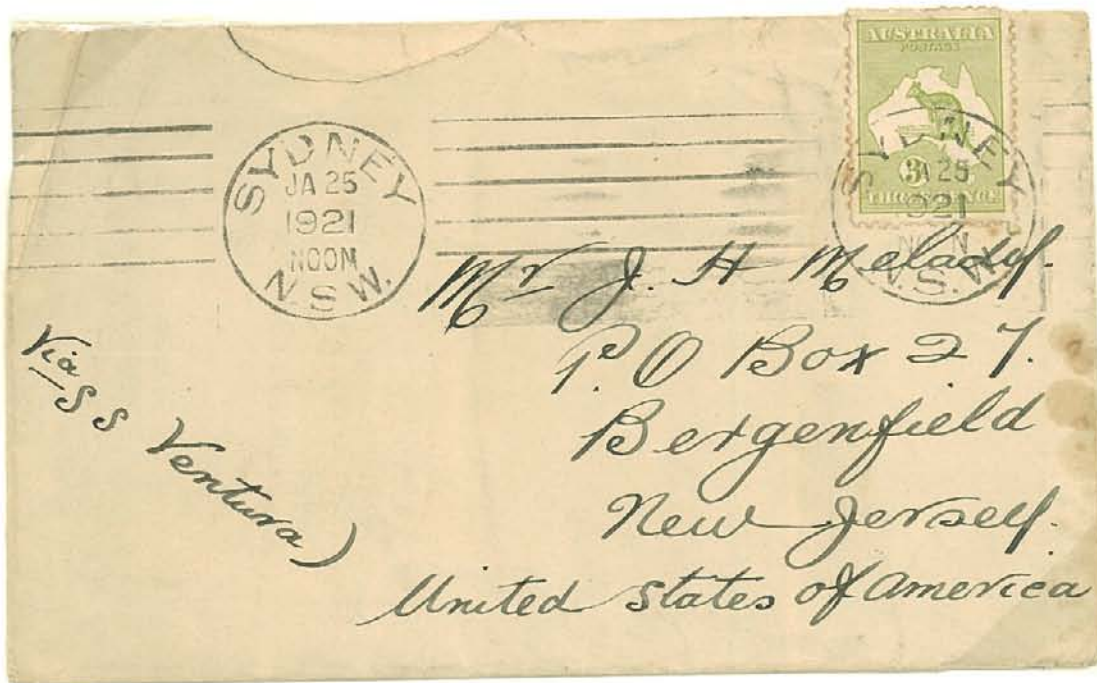 AUSTRALIA
POSTAGE
3
THREE PENCE
SYDNEY
JA 25
1921
NOON
N.S.W.
SYDNEY
JA 25
1921
NOON
N.S.W.
Mr J. H Melady.
P.O Box 27.
Bergenfield
New Jersey.
United States of America
Via SS Ventura)